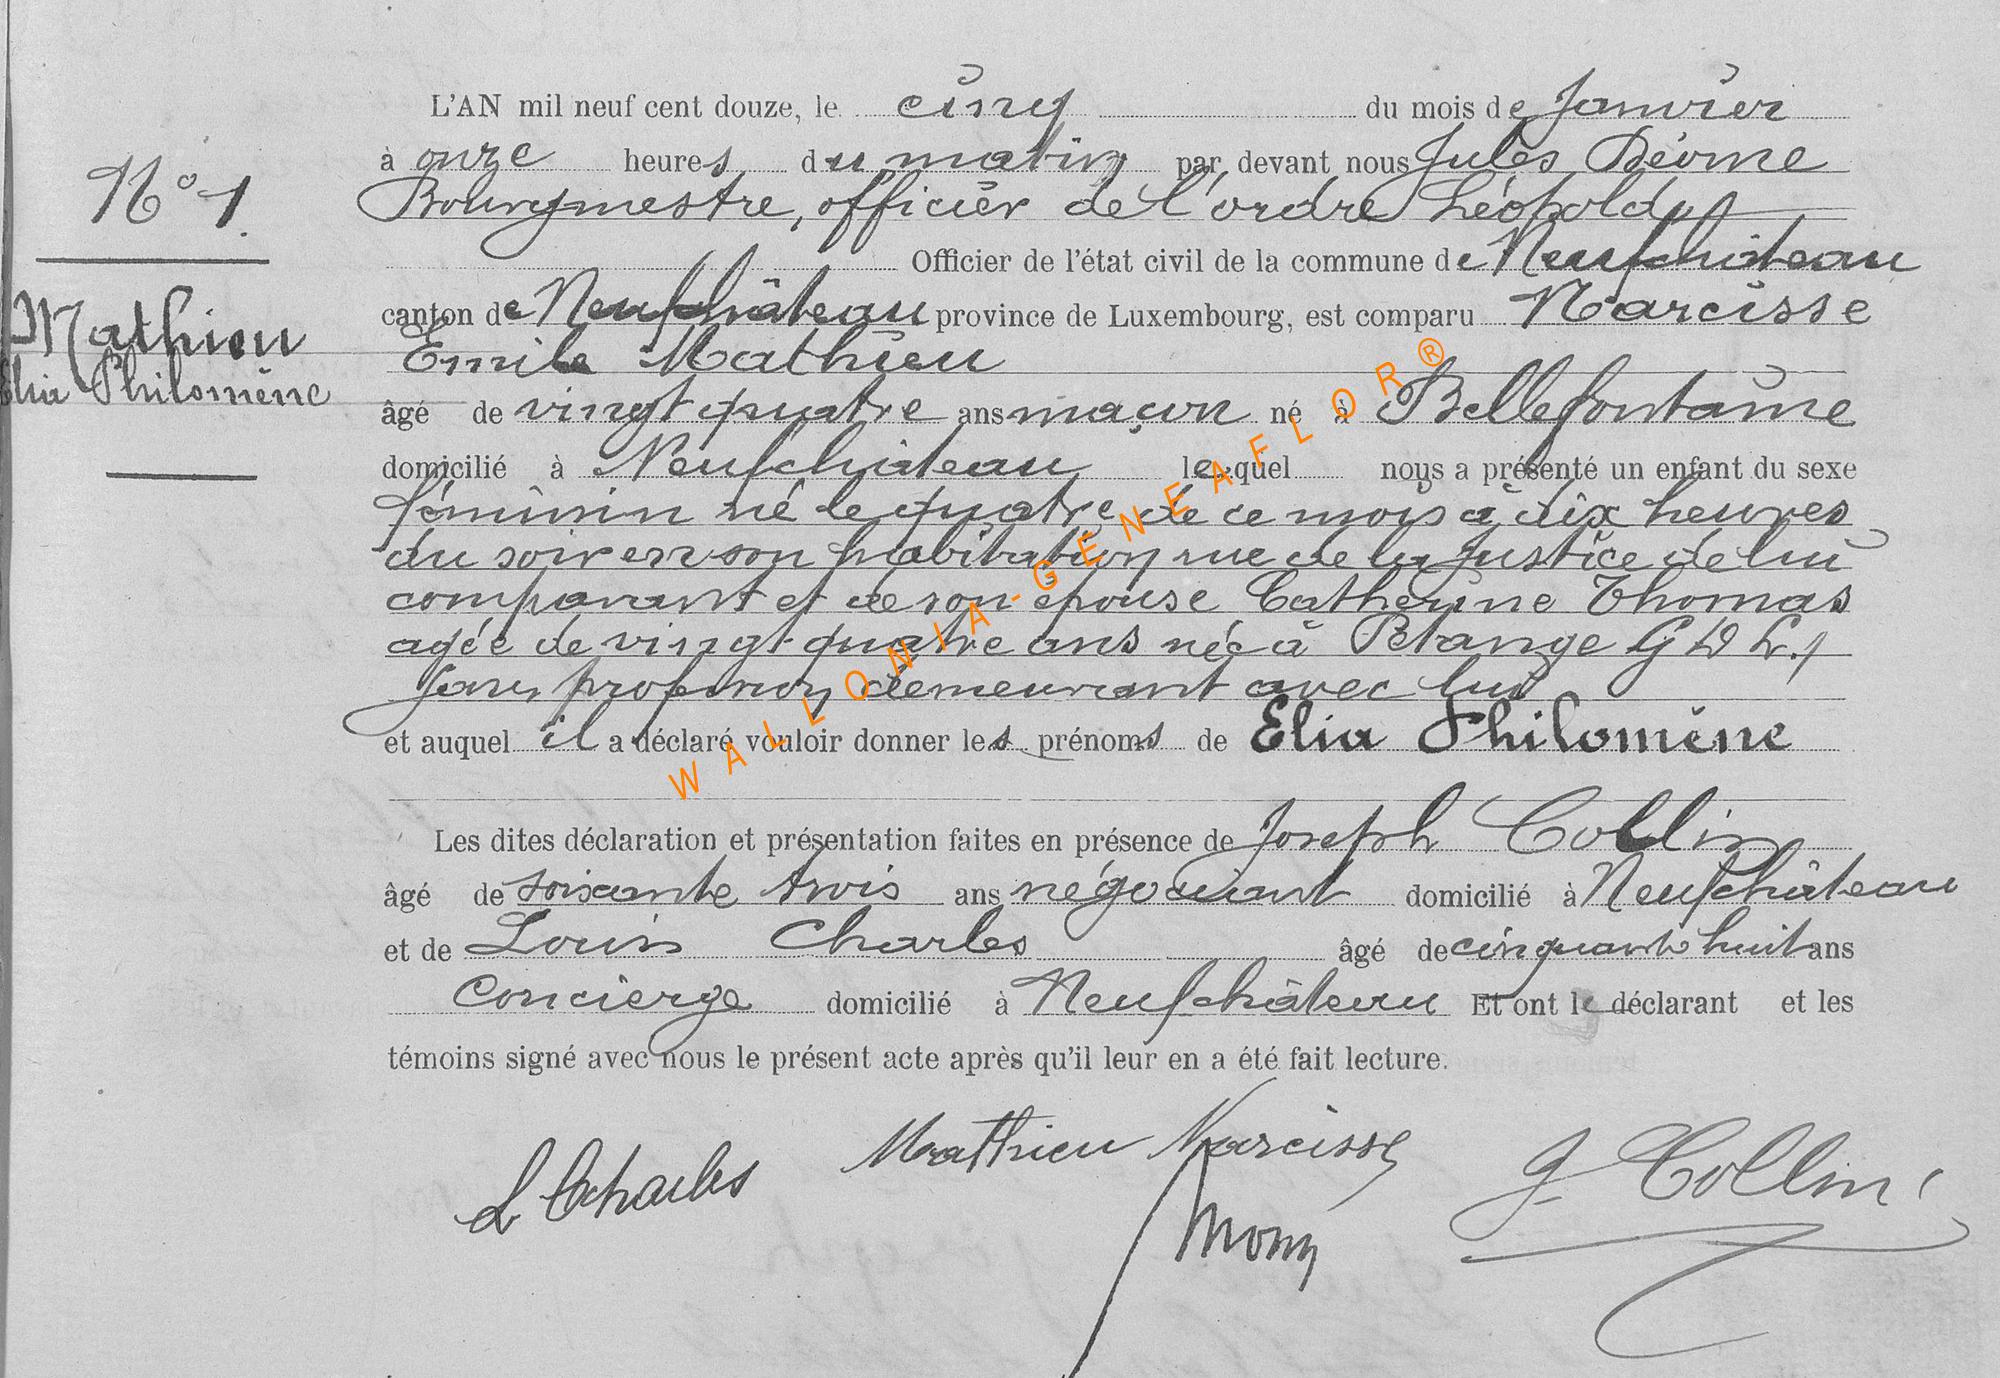 L'AN mil neuf cent douze, le cinq du mois de Janvier
à onze heures du matin par devant nous Jules
Bourgmestre, officier de l'ordre Léopold
Officier de l'état civil de la commune de Neufchâteau
canton de Neufchâteau province de Luxembourg, est comparu Narcisse
Emile Mathieu
âgé de vingt quatre ans maçon né à Bellefontaine
domicilié à Neufchâteau lequel nous a présenté un enfant du sexe
féminin né le quatre de ce mois à dix heures
du soir en son habitation rue de la Justice de lui
comparant et de son épouse Catherine Thomas
agée de vingt-quatre ans née à Pétange G D L.,
sans profession demeurant avec lui
et auquel il a déclaré vouloir donner les prénoms de Elia Philomène
Les dites déclaration et présentation faites en présence de Joseph Collin
âgé de soixante trois ans négociant domicilié à Neufchâteau
et de Louis Charles âgé de cinquante huit ans
concierge domicilié à Neufchâteau Et ont le déclarant et les
témoins signé avec nous le présent acte après qu'il leur en a été fait lecture.
L Charles Mathieu Narcisse J. Collin
N° 1
Mathieu
Elia Philomène
WALLONIA-GENEAFLOR®